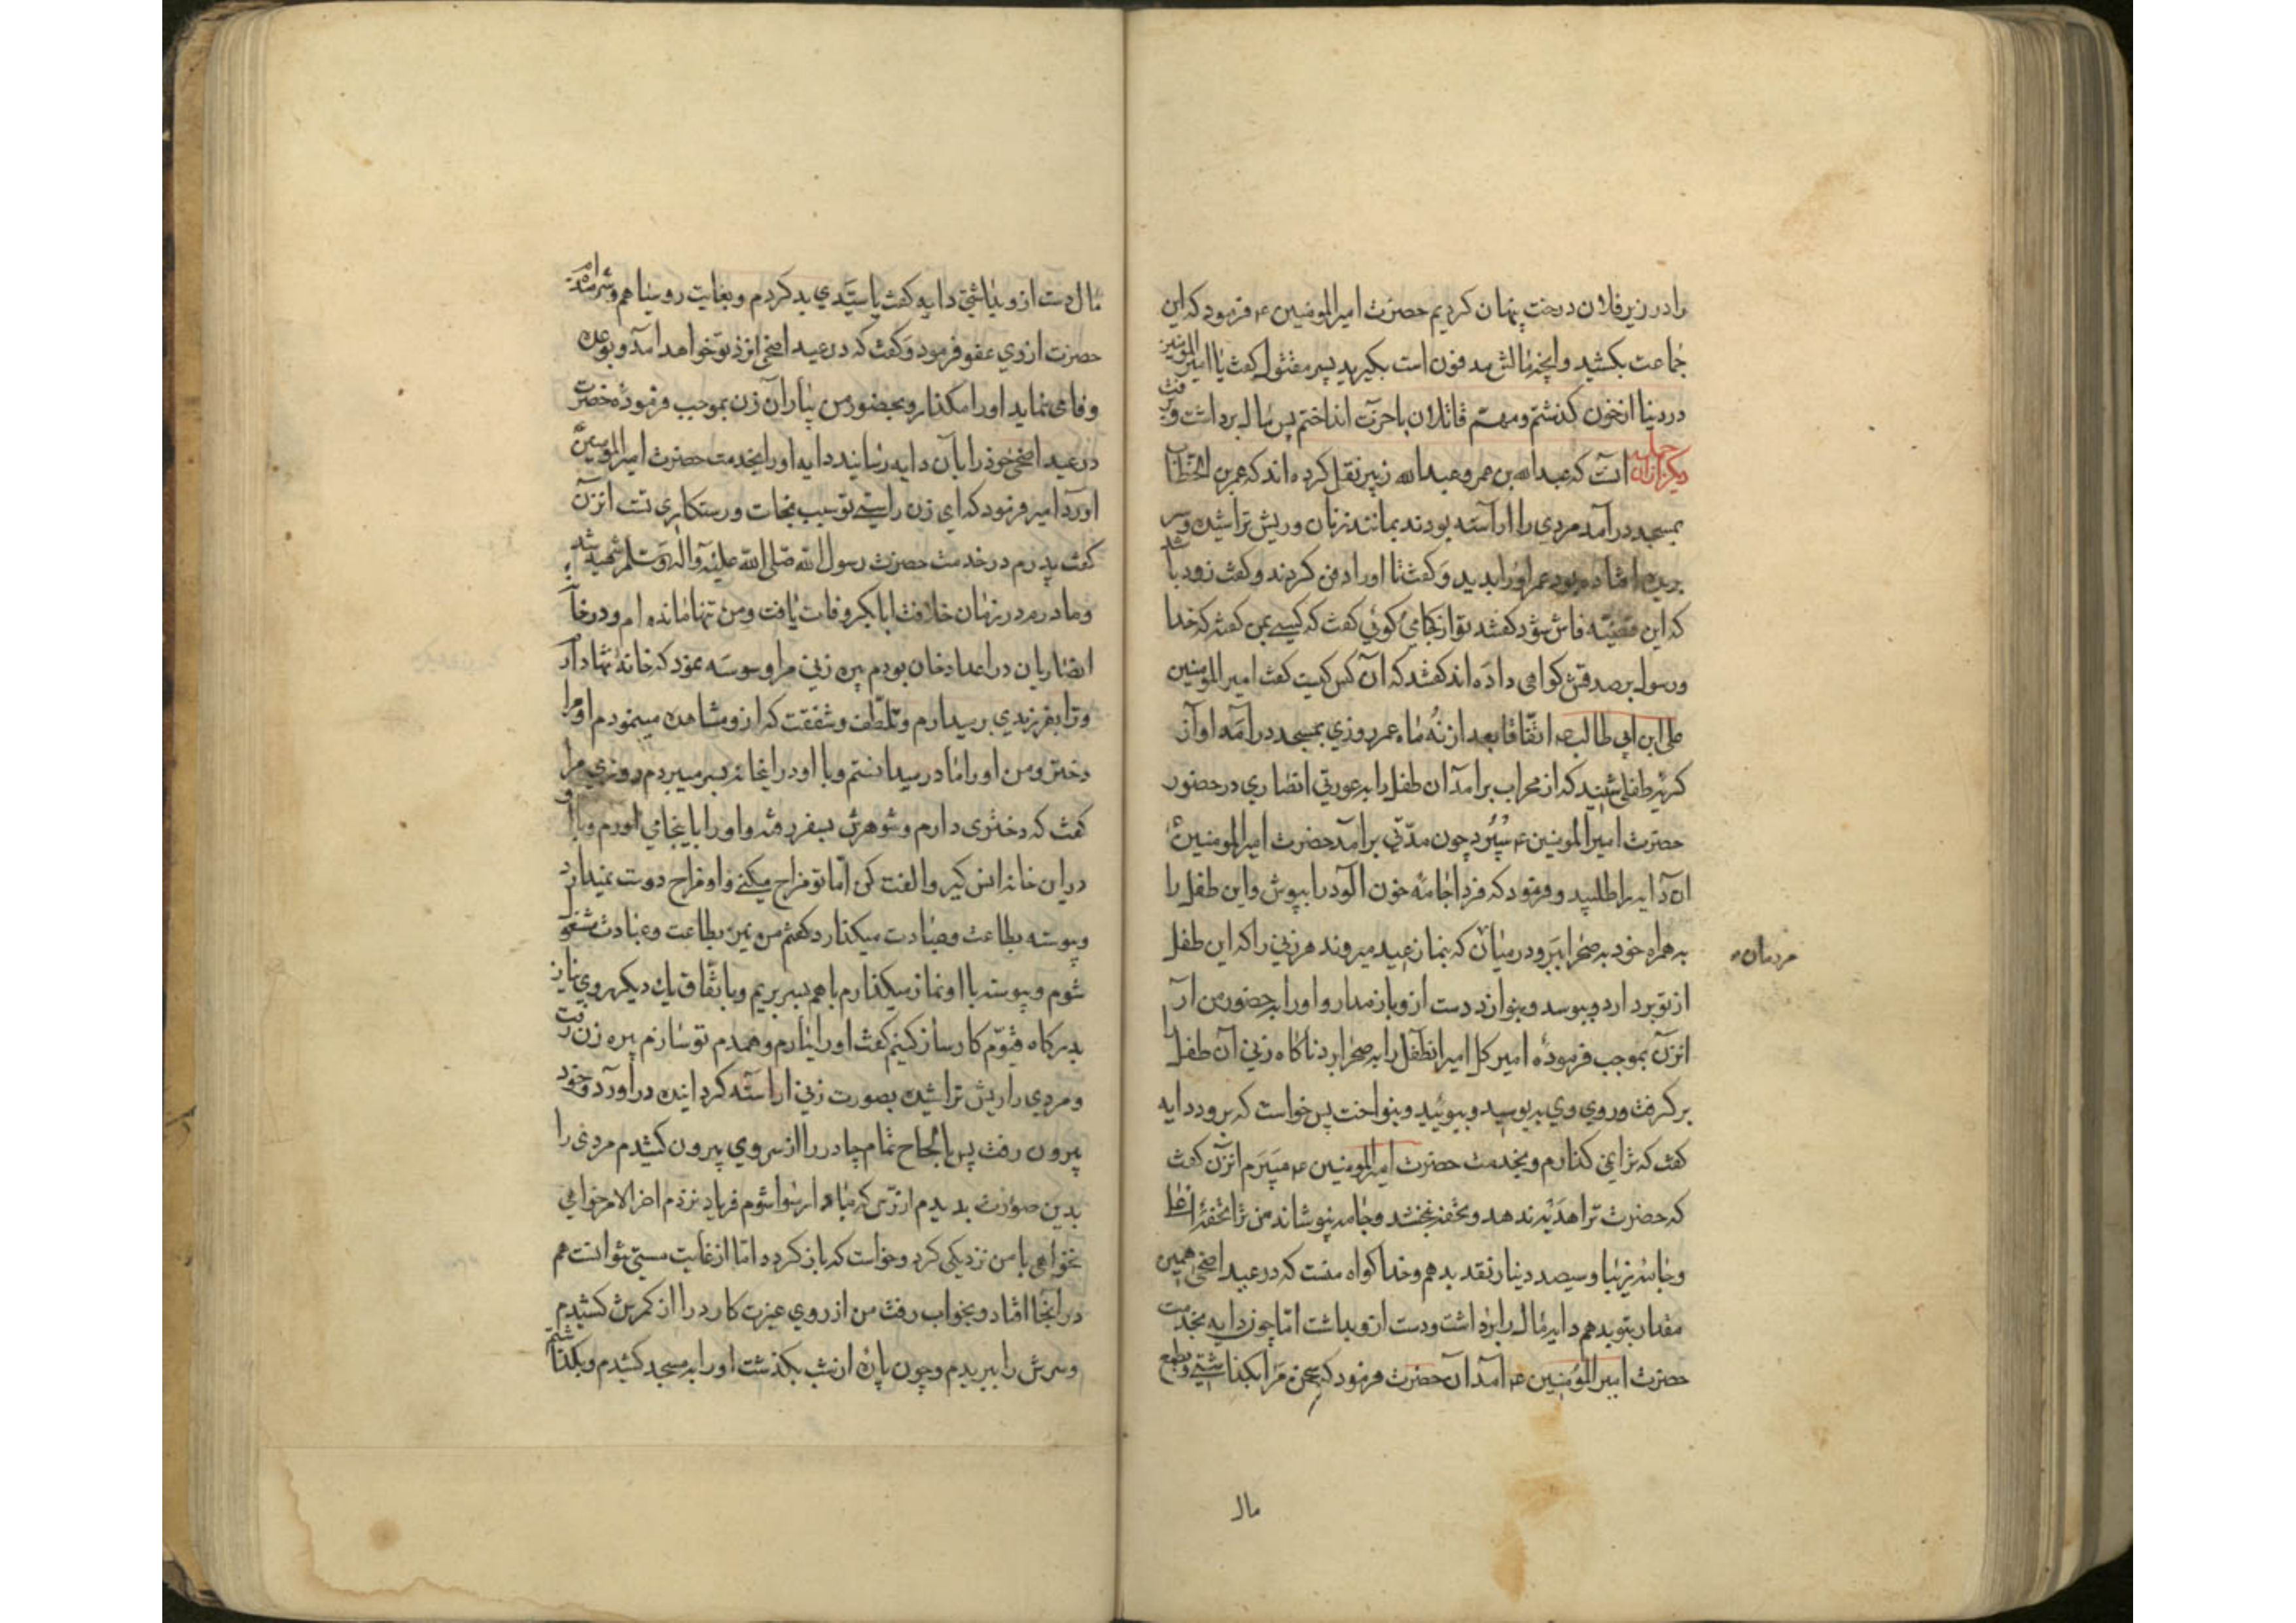 را در زیر فلان درخت پنهان کردیم حضرت امیرالمومنین ع فرمود که این
جماعت بکشید و انچه مالش مدفون است بکیرید پسر مقتول کفت یا امیرالمومنین
در دینا از خون کذشتم و مهم قاتلان باخرت انداختم پس مال برداشت و برفت
دیکر از ان جمله انست که عبدالله بن عمر و عبدالله زبیر نقل کرده اند که عمر بن الخطاب
بمسجد در آمد مردی را اراسته بودند بمانند زنان و ریش تراشیده و سر
بریده افتاده بود عمر او را بدید و کفت تا او را دفن کردند و کفت زود باشد
که این قضیّه فاش شود کفتند تو از کجا میکوئی کفت که کسی بمن کفته که خدا
و رسول بر صدقش کواهی داده اند کفتند که آن کس کیست کفت امیرالمومنین
علی ابن ابی طالب ع اتّفاقا بعد از نُه ماه عمر روزی بمسجد در آمد اواز
کریهٔ طفلی شنید که از محراب بر امد آن طفل را به عورتی انصاری در حضور
حضرت امیرالمومنین ع سپُرد چون مدّتی بر آمد حضرت امیرالمومنین ع
ان دایه را طلبید و فرمود که فردا جامهٔ خون الود را بپوش و این طفل را
به همراه خود به صحرا ببر و در میان که بنماز عید میروند هر زنی را که این طفل
مردمان
از تو بردارد و ببوسد و بنوازد دست از و باز مدار و او را به حضور من آر
انزن بموجب فرمودهٔ امیر کل امیر انطفل را به صحرا برد ناکاه زنی آن طفل را
بر کرفت و روی وی ببوسید و ببوئید و بنواخت پس خواست که برود دایه
کفت که ترا نمی کذارم و بخدمت حضرت امیرالمومنین ع میبَرَم انزن کفت
که حضرت ترا هدیّه ندهد و تحفه نبخشد و جامه نپوشاند من ترا تحفهٔ اعلا
و جامهٔ زیبا و سیصد دینار نقد بدهم و خدا کواه منست که در عید اضحی همین
مقدار بتو بدهم دایه مال را برداشت و دست ازو بداشت امّا چون دایه بخدمت
حضرت امیرالمومنین ع آمد آن حضرت فرمود که سخن مرا بکذاشتی و بطمع
مال
مال دست ازو بداشتی دایه کفت یا سیّدی بد کردم و بغایت روسیاهم و شرمنده ام
حضرت از وی عفو فرمود و کفت که در عید اضحی انزن نزد تو خواهد آمد و بوعده
وفا می نماید او را مکذار و بحضور من بیار آن زن بموجب فرمودهٔ حضرت
در عید اضحی خود را بآن دایه رسانید دایه او را بخدمت حضرت امیرالمومنین ع
اورد امیر فرمود که ای زن راستی تو سبب نجات و رستکاری تست انزن
کفت پدرم در خدمت حضرت رسول الله صلّی الله علیه و آله و سلم شهید شد
و مادرم در زمان خلافت ابابکر وفات یافت و من تنها مانده ام و در خانه
انصاریان در اعداد خان بودم پیره زنی مرا وسوسه نمود که خانهٔ تنها دارم
و ترا بفرزندی بر میدارم و تلطّف و شفقت که ازو مشاهده مینمودم او مرا
دختر و من او را مادر میدانستم و با او در انخانه بسر میبردم روزی مرا
کفت که دختری دارم و شوهرش بسفر رفته و او را باینجا می اورم و با او
در این خانه انس کیر و الفت کن امّا تو مزاح میکنی و او مزاح دوست نمیدارد
و پیوسته بطاعت و عبادت میکذارد کفتم من نیز بطاعت و عبادت مشغول
شوم و پیوسته با او نماز میکذارم با هم بسر بریم و باتّفاق یک دیکر روی نیاز
بدرکاه قیّوم کارساز کنیم کفت او را بیارم و همدم تو سازم پیره زن رفت
و مردی را ریش تراشیده بصورت زنی اراسته کردانیده در آورد و خود
بیرون رفت پس بالحاح تمام چادر را از سر وی بیرون کشیدم مردی را
بدین صورت بدیدم از ترس که مبادا رسوا شوم فریاد نزدم اخر الامر خواهی
نخواهی با من نزدیکی کرد و خواست که باز کردد امّا از غایت مستی نتوانست هم
در انجا افتاد و بخواب رفت من از روی غیرت کارد را از کمرش کشیدم
و سرش را ببریدم و چون پارهٔ از شب بکذشت او را به مسجد کشیدم و بکذاشتم